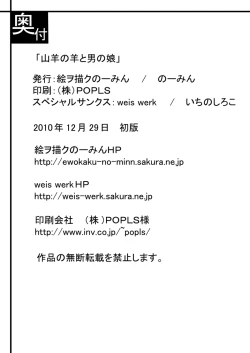 奥付
「山羊の羊と男の娘」
発行：絵ヲ描クのーみん　/　のーみん
印刷：（株）POPLS
スペシャルサンクス：weis werk　/　いちのしろこ
2010年12月29日　初版
絵ヲ描クのーみんHP
http://ewokaku-no-minn.sakura.ne.jp
weis werkHP
http://weis-werk.sakura.ne.jp
印刷会社　（株）POPLS様
http://www.inv.co.jp/~popls/
作品の無断転載を禁止します。